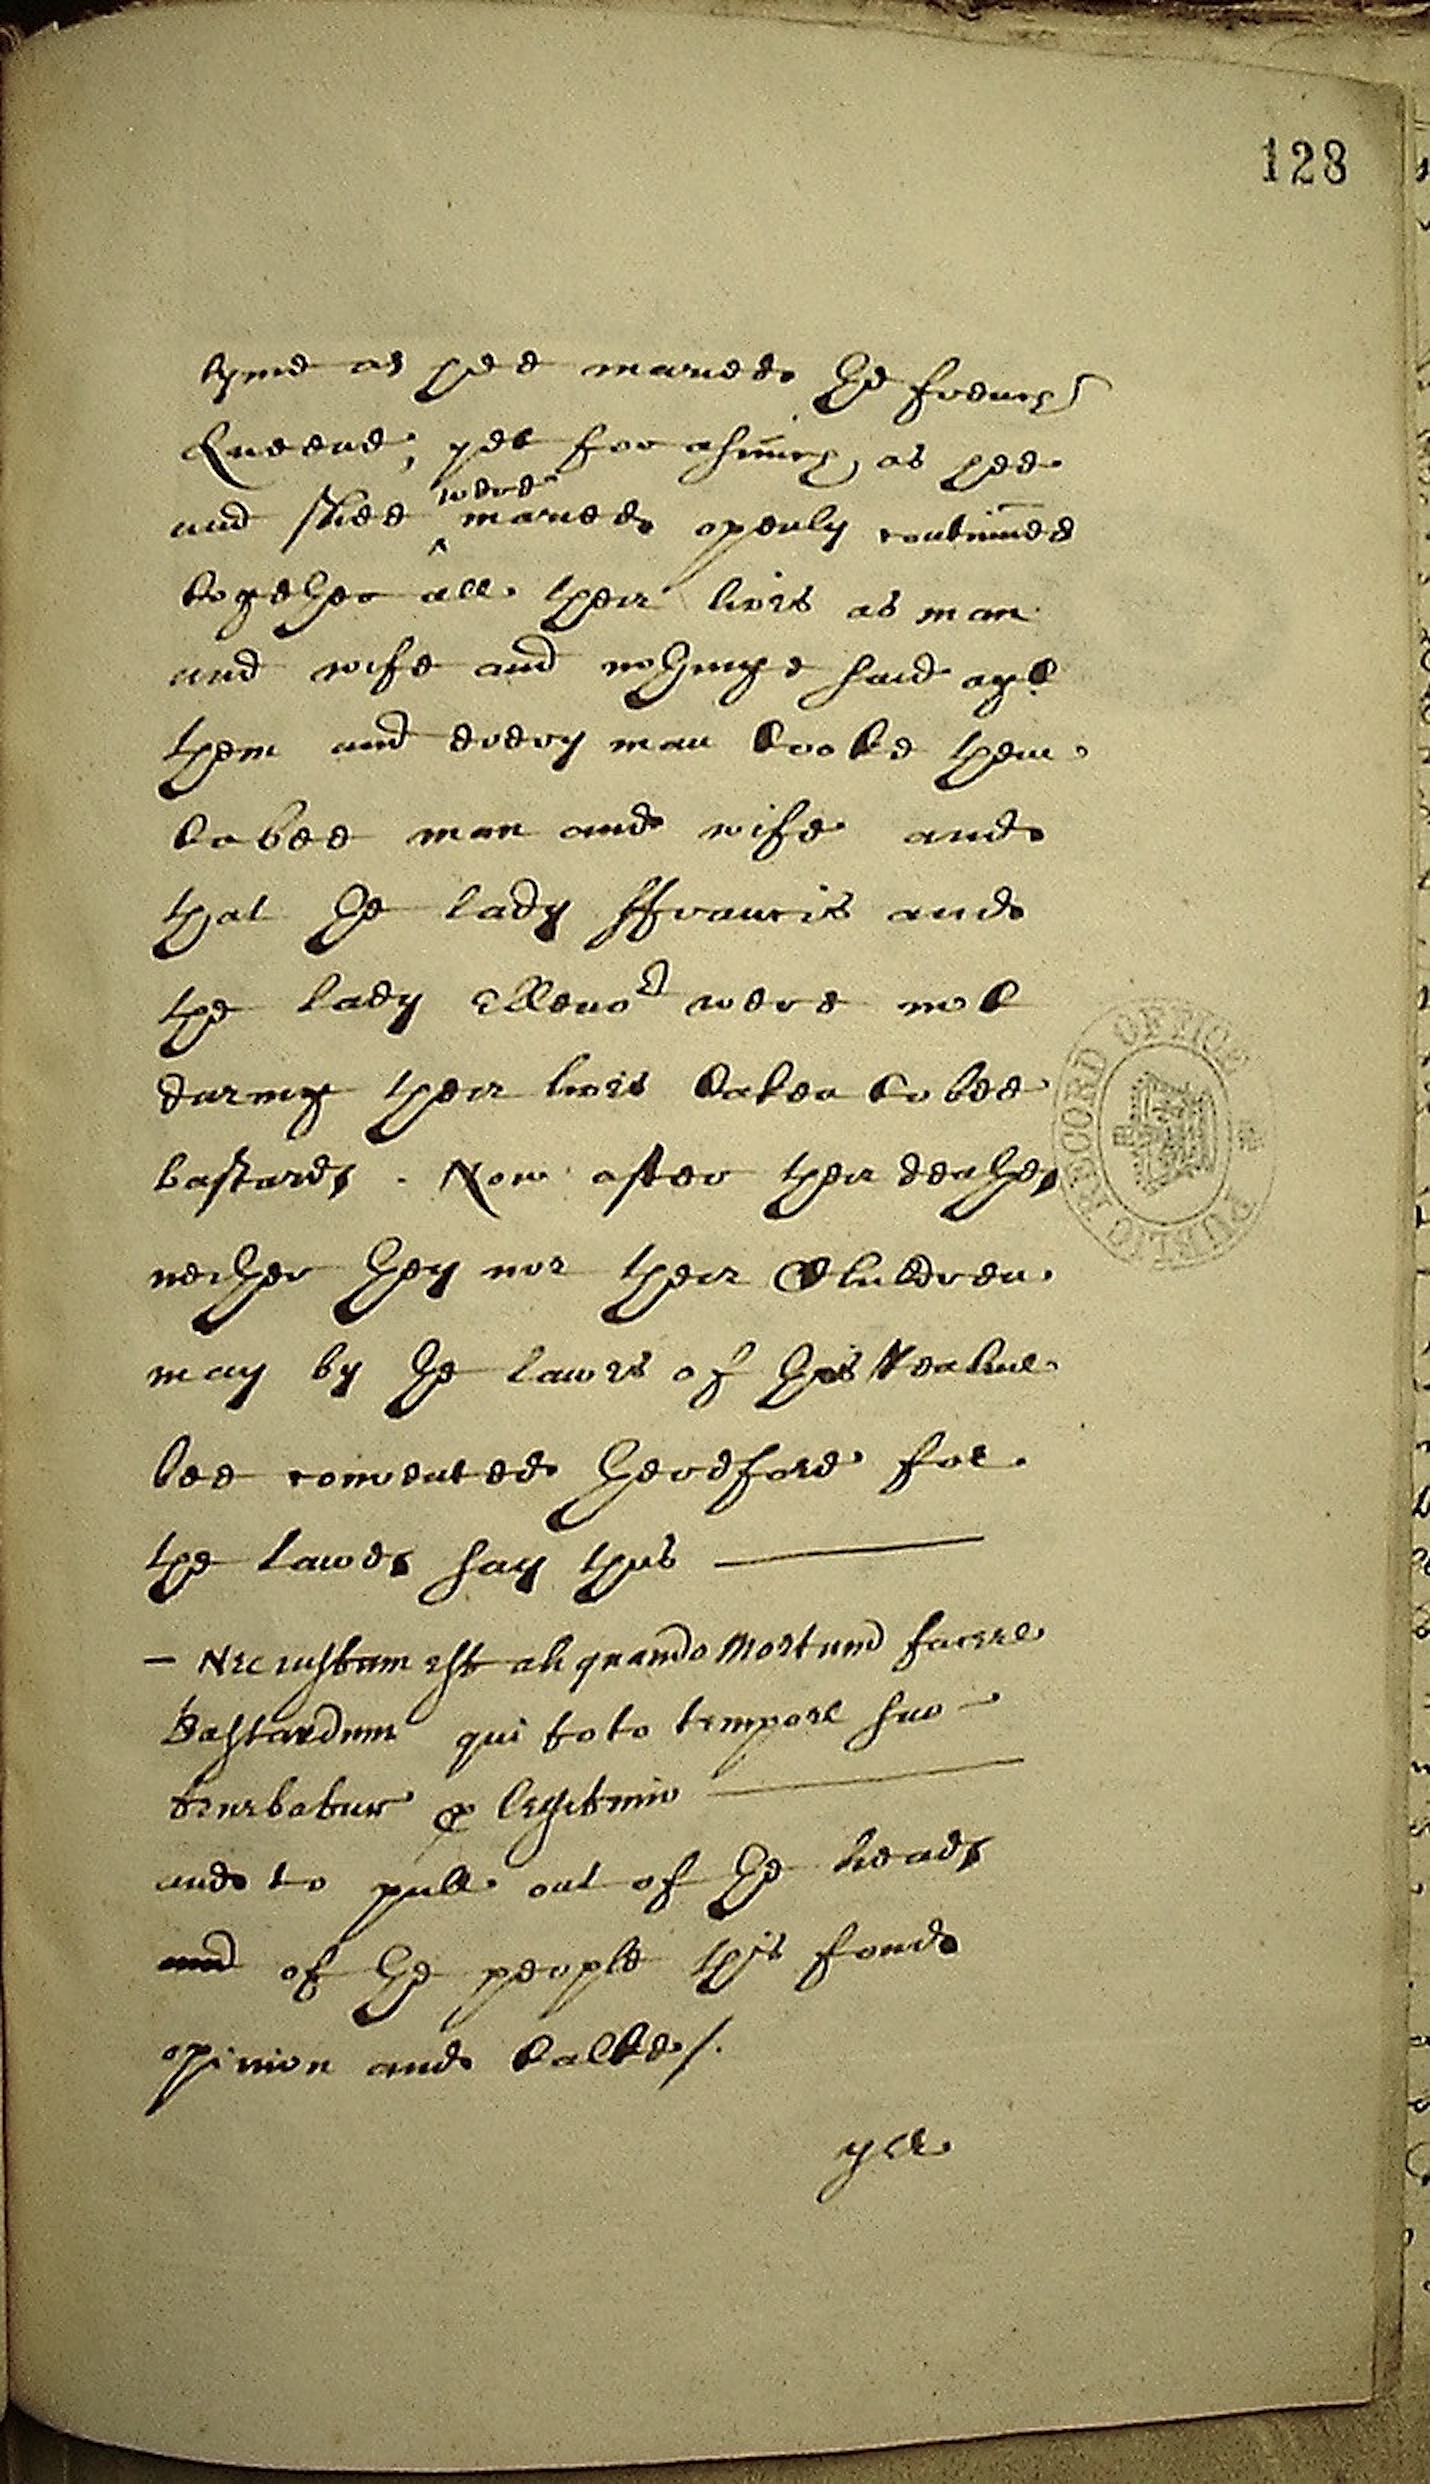 128
tyme as hee maried the french
Queene, yet for asmuch as hee
and shee were maried openly continued
together all their lives as man
and wife and nothinge said agt
them and every man tooke them
to bee man and wife and
that the lady ffrancis and
the lady Ellenor were not
during their lives taken to bee
bastards. Now after their deathes
neither they nor their Children
may by the lawes of this Realme
bee convented therefore for
the lawes say thus
— Nec iustum est aliquando Mortuum facere
Bastardum qui toto tempore suo —
tenebatur p legitimo
and to pull out of the heads
and of the people this fond
opinion and talke /.
yet
PUBLIC RECORD OFFICE